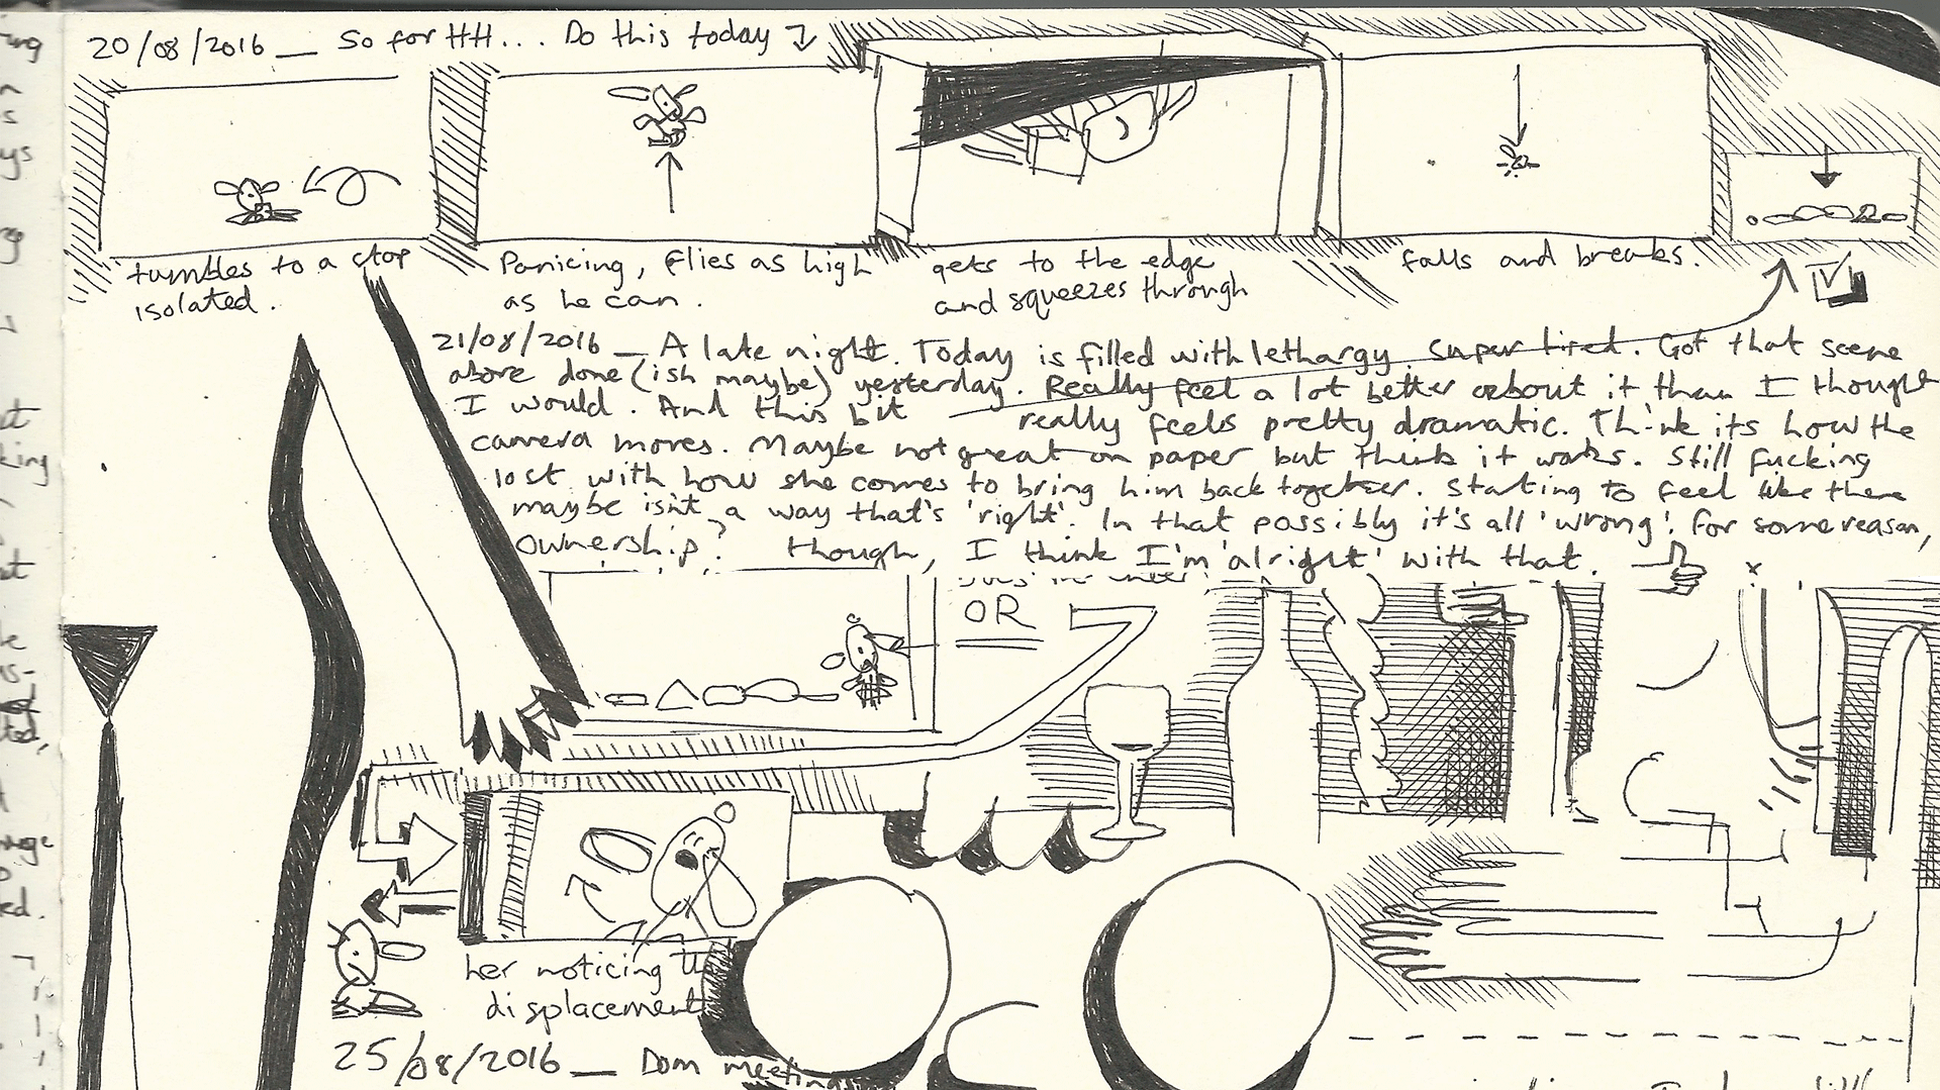 20/08/2016 — So for HH... Do this today
tumbles to a stop
isolated.
Panicing, flies as high
as he can.
gets to the edge
and squeezes through
falls and breaks.
21/08/2016 — A late night. Today is filled with lethargy super tired. Got that scene
above done (ish maybe) yesterday. Really feel a lot better about it than I thought
I would. And this bit really feels pretty dramatic. Think its how the
camera moves. Maybe not great on paper but think it works. Still fucking
lost with how she comes to bring him back together. Starting to feel like there
maybe isn't a way that's 'right'. In that possibly it's all 'wrong'. For some reason,
ownership? though, I think I'm 'alright' with that.
OR
her noticing
displacement
25/08/2016 — Dom meeting